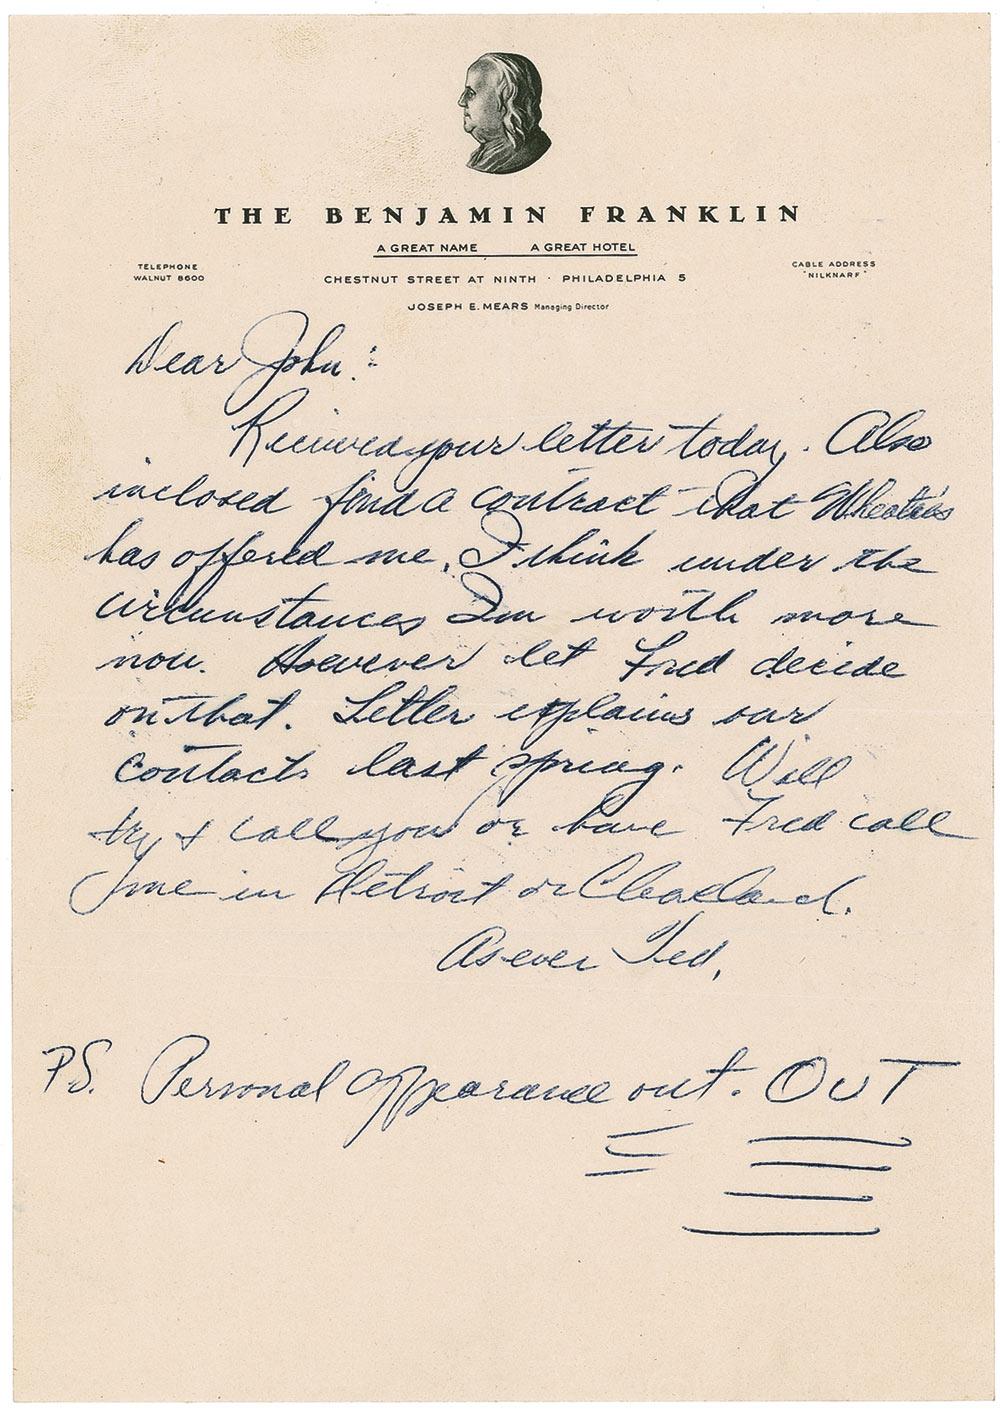 THE BENJAMIN FRANKLIN
A GREAT NAME A GREAT HOTEL
TELEPHONE
WALNUT 8600
CHESTNUT STREET AT NINTH · PHILADELPHIA 5
CABLE ADDRESS
"NILKNARF"
JOSEPH E. MEARS Managing Director
Dear John:
Recieved your letter today. Also
inclosed find a contract that Wheaties
has offered me. I think under the
circunstances Im worth more
now. However let Fred decide
on that. Letter explains our
contacts last spring. Will
try & call you or have Fred call
me in Detroit or Cleveland.
As ever Ted.
P.S. Personal appearance out. OUT